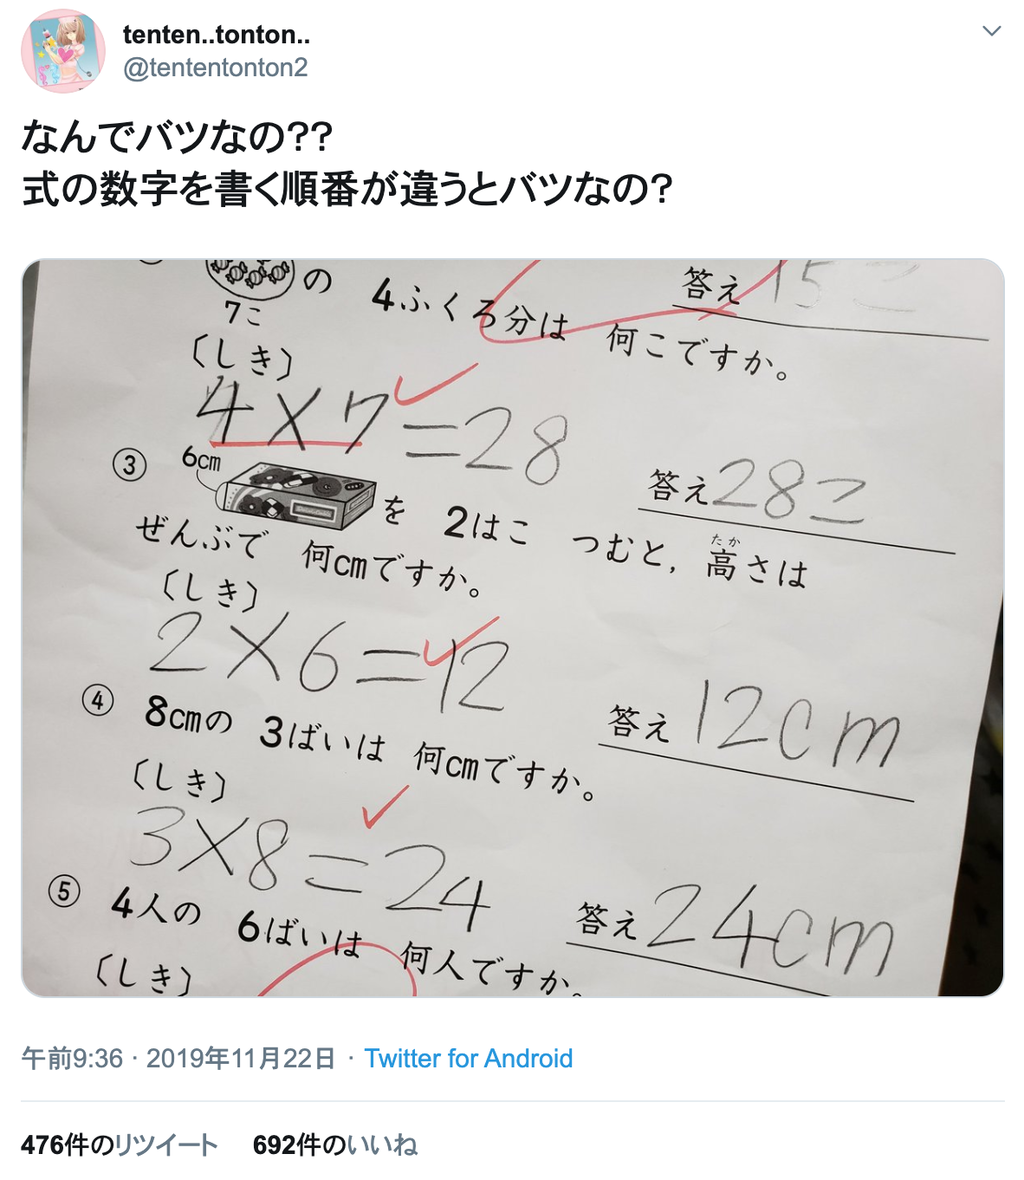 tenten..tonton..
@tententonton2
なんでバツなの??
式の数字を書く順番が違うとバツなの?
の 4ふくろ分は 何こですか。
7こ
答え 15こ
〔しき〕
4×7=28
答え 28こ
③ 6cm を 2はこ つむと,高さは
たか
ぜんぶで 何cmですか。
〔しき〕
2×6=12
答え 12cm
④ 8cmの 3ばいは 何cmですか。
〔しき〕
3×8=24
答え 24cm
⑤ 4人の 6ばいは 何人ですか。
〔しき〕
午前9:36 · 2019年11月22日 · Twitter for Android
476件のリツイート 692件のいいね